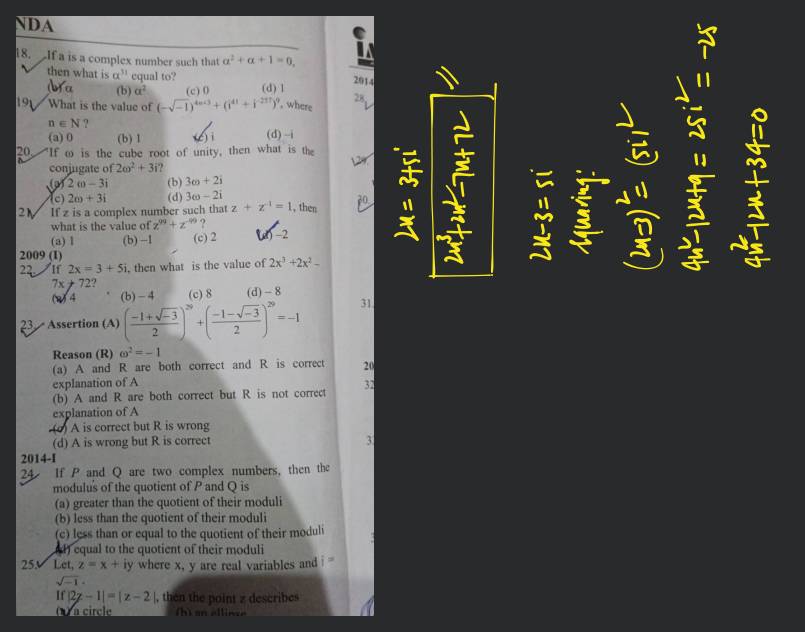 NDA
18. If a is a complex number such that α² + α + 1 = 0,
then what is α³¹ equal to?
(b) α (b) α² (c) 0 (d) 1
19. What is the value of (−√−1)⁴ⁿ⁺³ + (i⁴¹ + i⁻²⁵⁷)⁹, where
n ∈ N ?
(a) 0 (b) 1 (c) i (d) –i
20. If ω is the cube root of unity, then what is the
conjugate of 2ω² + 3i?
(a) 2 ω – 3i (b) 3ω + 2i
(c) 2ω + 3i (d) 3ω – 2i
21. If z is a complex number such that z + z⁻¹ = 1, then
what is the value of z⁹⁹ + z⁻⁹⁹ ?
(a) 1 (b) –1 (c) 2 (d) –2
2009 (I)
22. If 2x = 3 + 5i, then what is the value of 2x³ +2x² –
7x + 72?
(a) 4 (b) – 4 (c) 8 (d) – 8
23. Assertion (A) ((−1+√−3)/2)²⁹ + ((−1−√−3)/2)²⁹ = –1
Reason (R) ω² = – 1
(a) A and R are both correct and R is correct
explanation of A
(b) A and R are both correct but R is not correct
explanation of A
(c) A is correct but R is wrong
(d) A is wrong but R is correct
2014-I
24. If P and Q are two complex numbers, then the
modulus of the quotient of P and Q is
(a) greater than the quotient of their moduli
(b) less than the quotient of their moduli
(c) less than or equal to the quotient of their moduli
(d) equal to the quotient of their moduli
25. Let, z = x + iy where x, y are real variables and i =
√−1 .
If |2z – 1| = | z – 2 |, then the point z describes
(a) a circle (b) an ellipse
2014
28.
29.
30.
31.
20
32
2x = 3+5i
2x³+2x²−7x+72
2x−3 = 5i
squaring:
(2x−3)² = (5i)²
4x²−12x+9 = 25i² = −25
4x²−12x+34=0